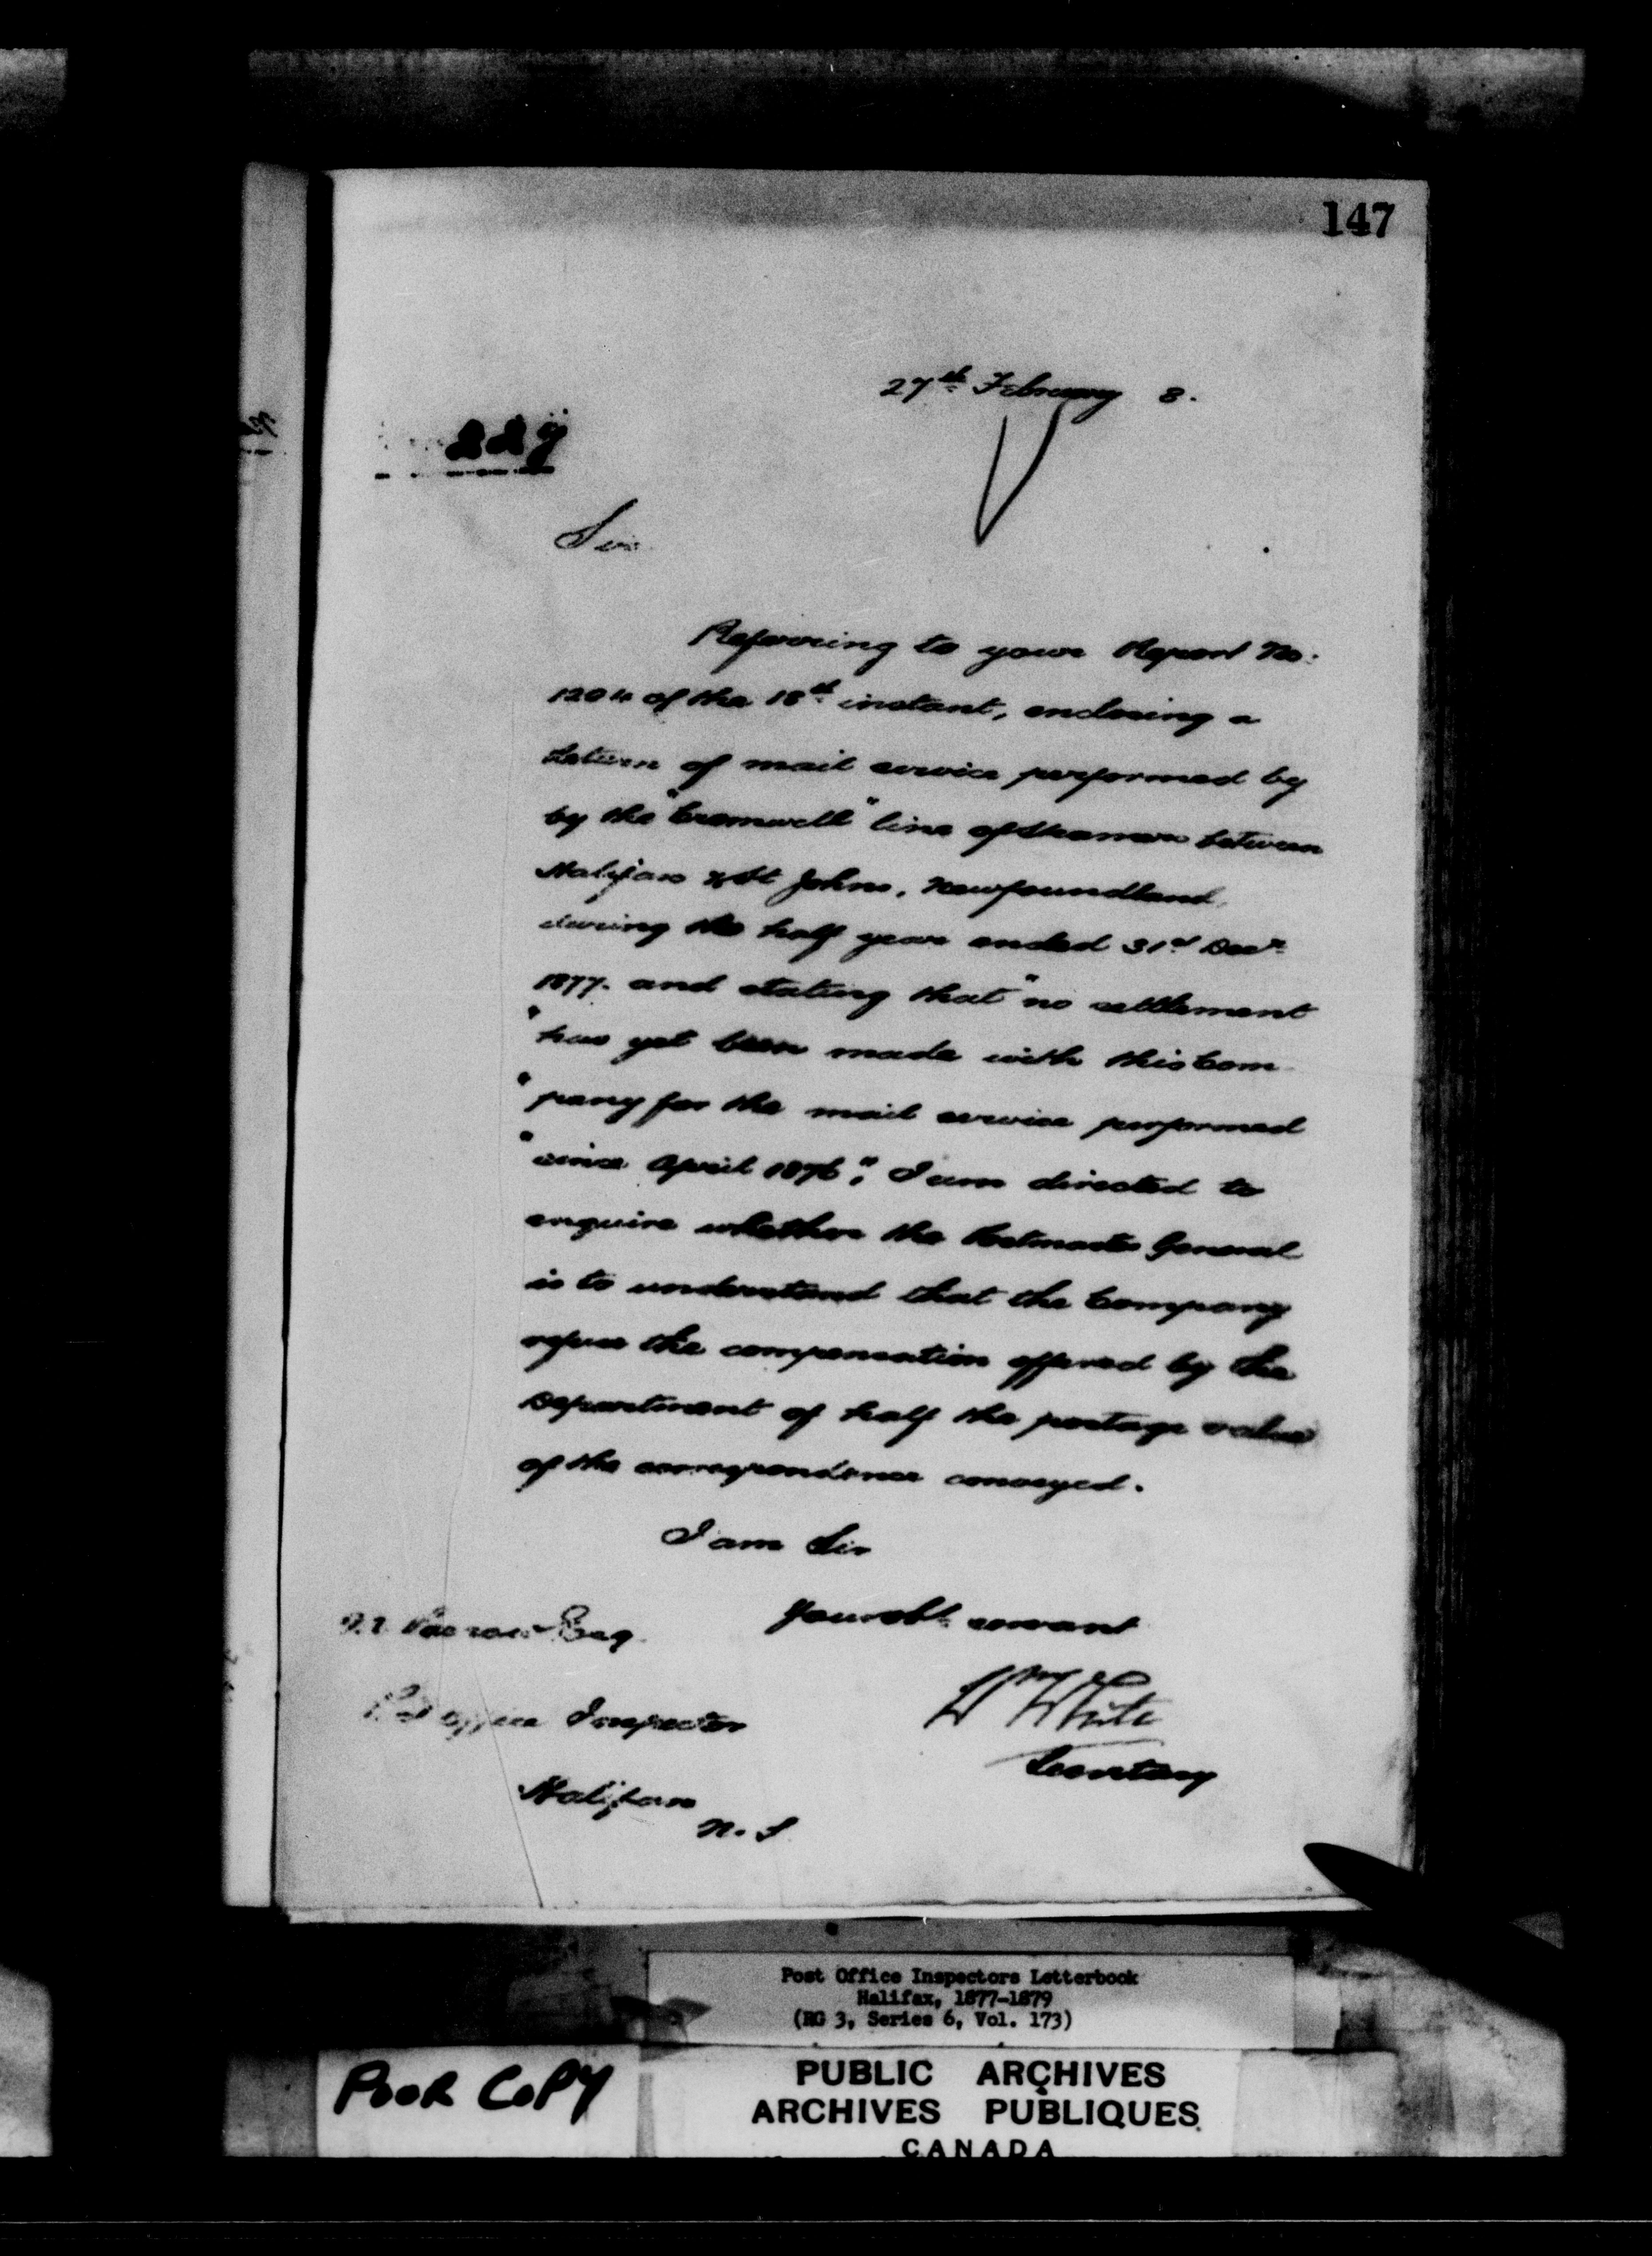 147
27th February 8.
229
Sir
Referring to your Report No:
1204 of the 18th instant, enclosing a
Return of mail service performed by
by the "Cromwell" line of Steamers between
Halifax & St Johns, Newfoundland,
during the half year ended 31st Decr
1877. and stating that "no settlement
"has yet been made with this Com
"pany for the mail service performed
"since April 1876", I am directed to
enquire whether the Postmaster General
is to understand that the Company
refuse the compensation offered by the
Department of half the postage value
of the correspondence conveyed.
I am Sir
Your obt servant
Esq
Wm White
Post Office Inspector
Secretary
Halifax
N. S
Post Office Inspectors Letterbook
Halifax, 1877-1879
(RG 3, Series 6, Vol. 173)
POOR COPY
PUBLIC ARCHIVES
ARCHIVES PUBLIQUES
CANADA